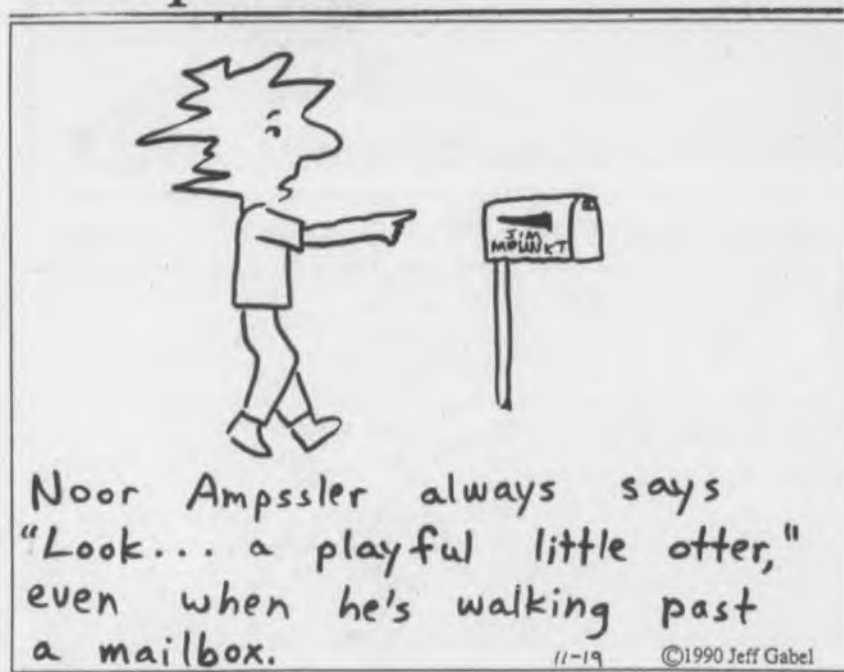 JIM
MOUNKT
Noor Ampssler always says
"Look... a playful little otter,"
even when he's walking past
a mailbox.
11-19 ©1990 Jeff Gabel